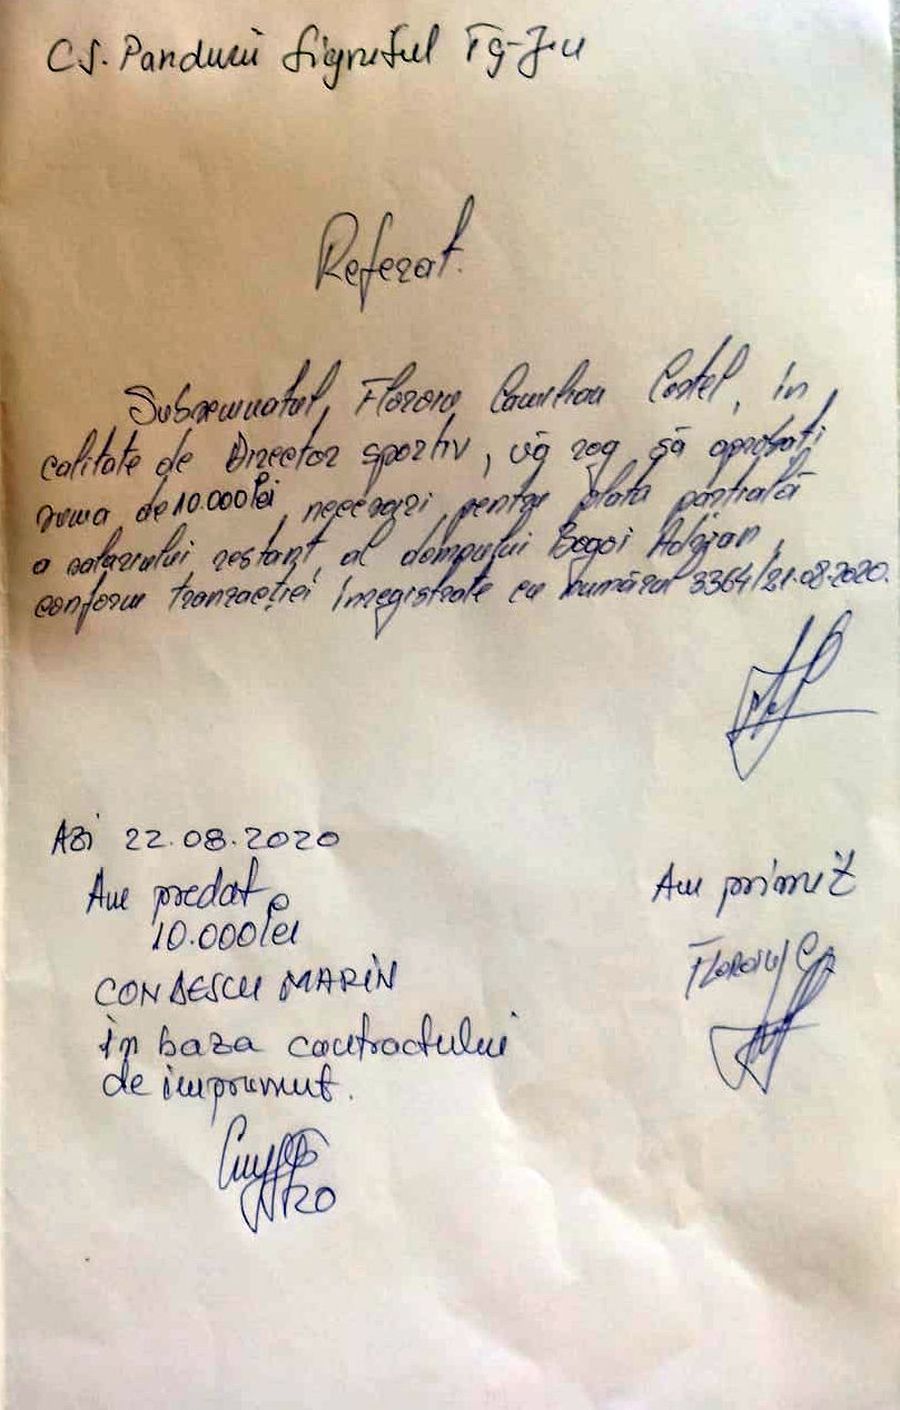 C.S. Pandurii Lignitul Tg-Jiu
Referat.
Subsemnatul, Floroiu Camilian Costel, în
calitate de Director sportiv, vă rog să aprobati
suma de 10.000 lei necesari pentru plata partială
a salariului restant al domnului Bogoi Adrian,
conform tranzacției înregistrate cu numărul 3364/21.08.2020.
Azi 22.08.2020
Am predat
10.000 lei
CONDESCU MARIN
în baza contractului
de imprumut.
Am primit
FLOROIU C